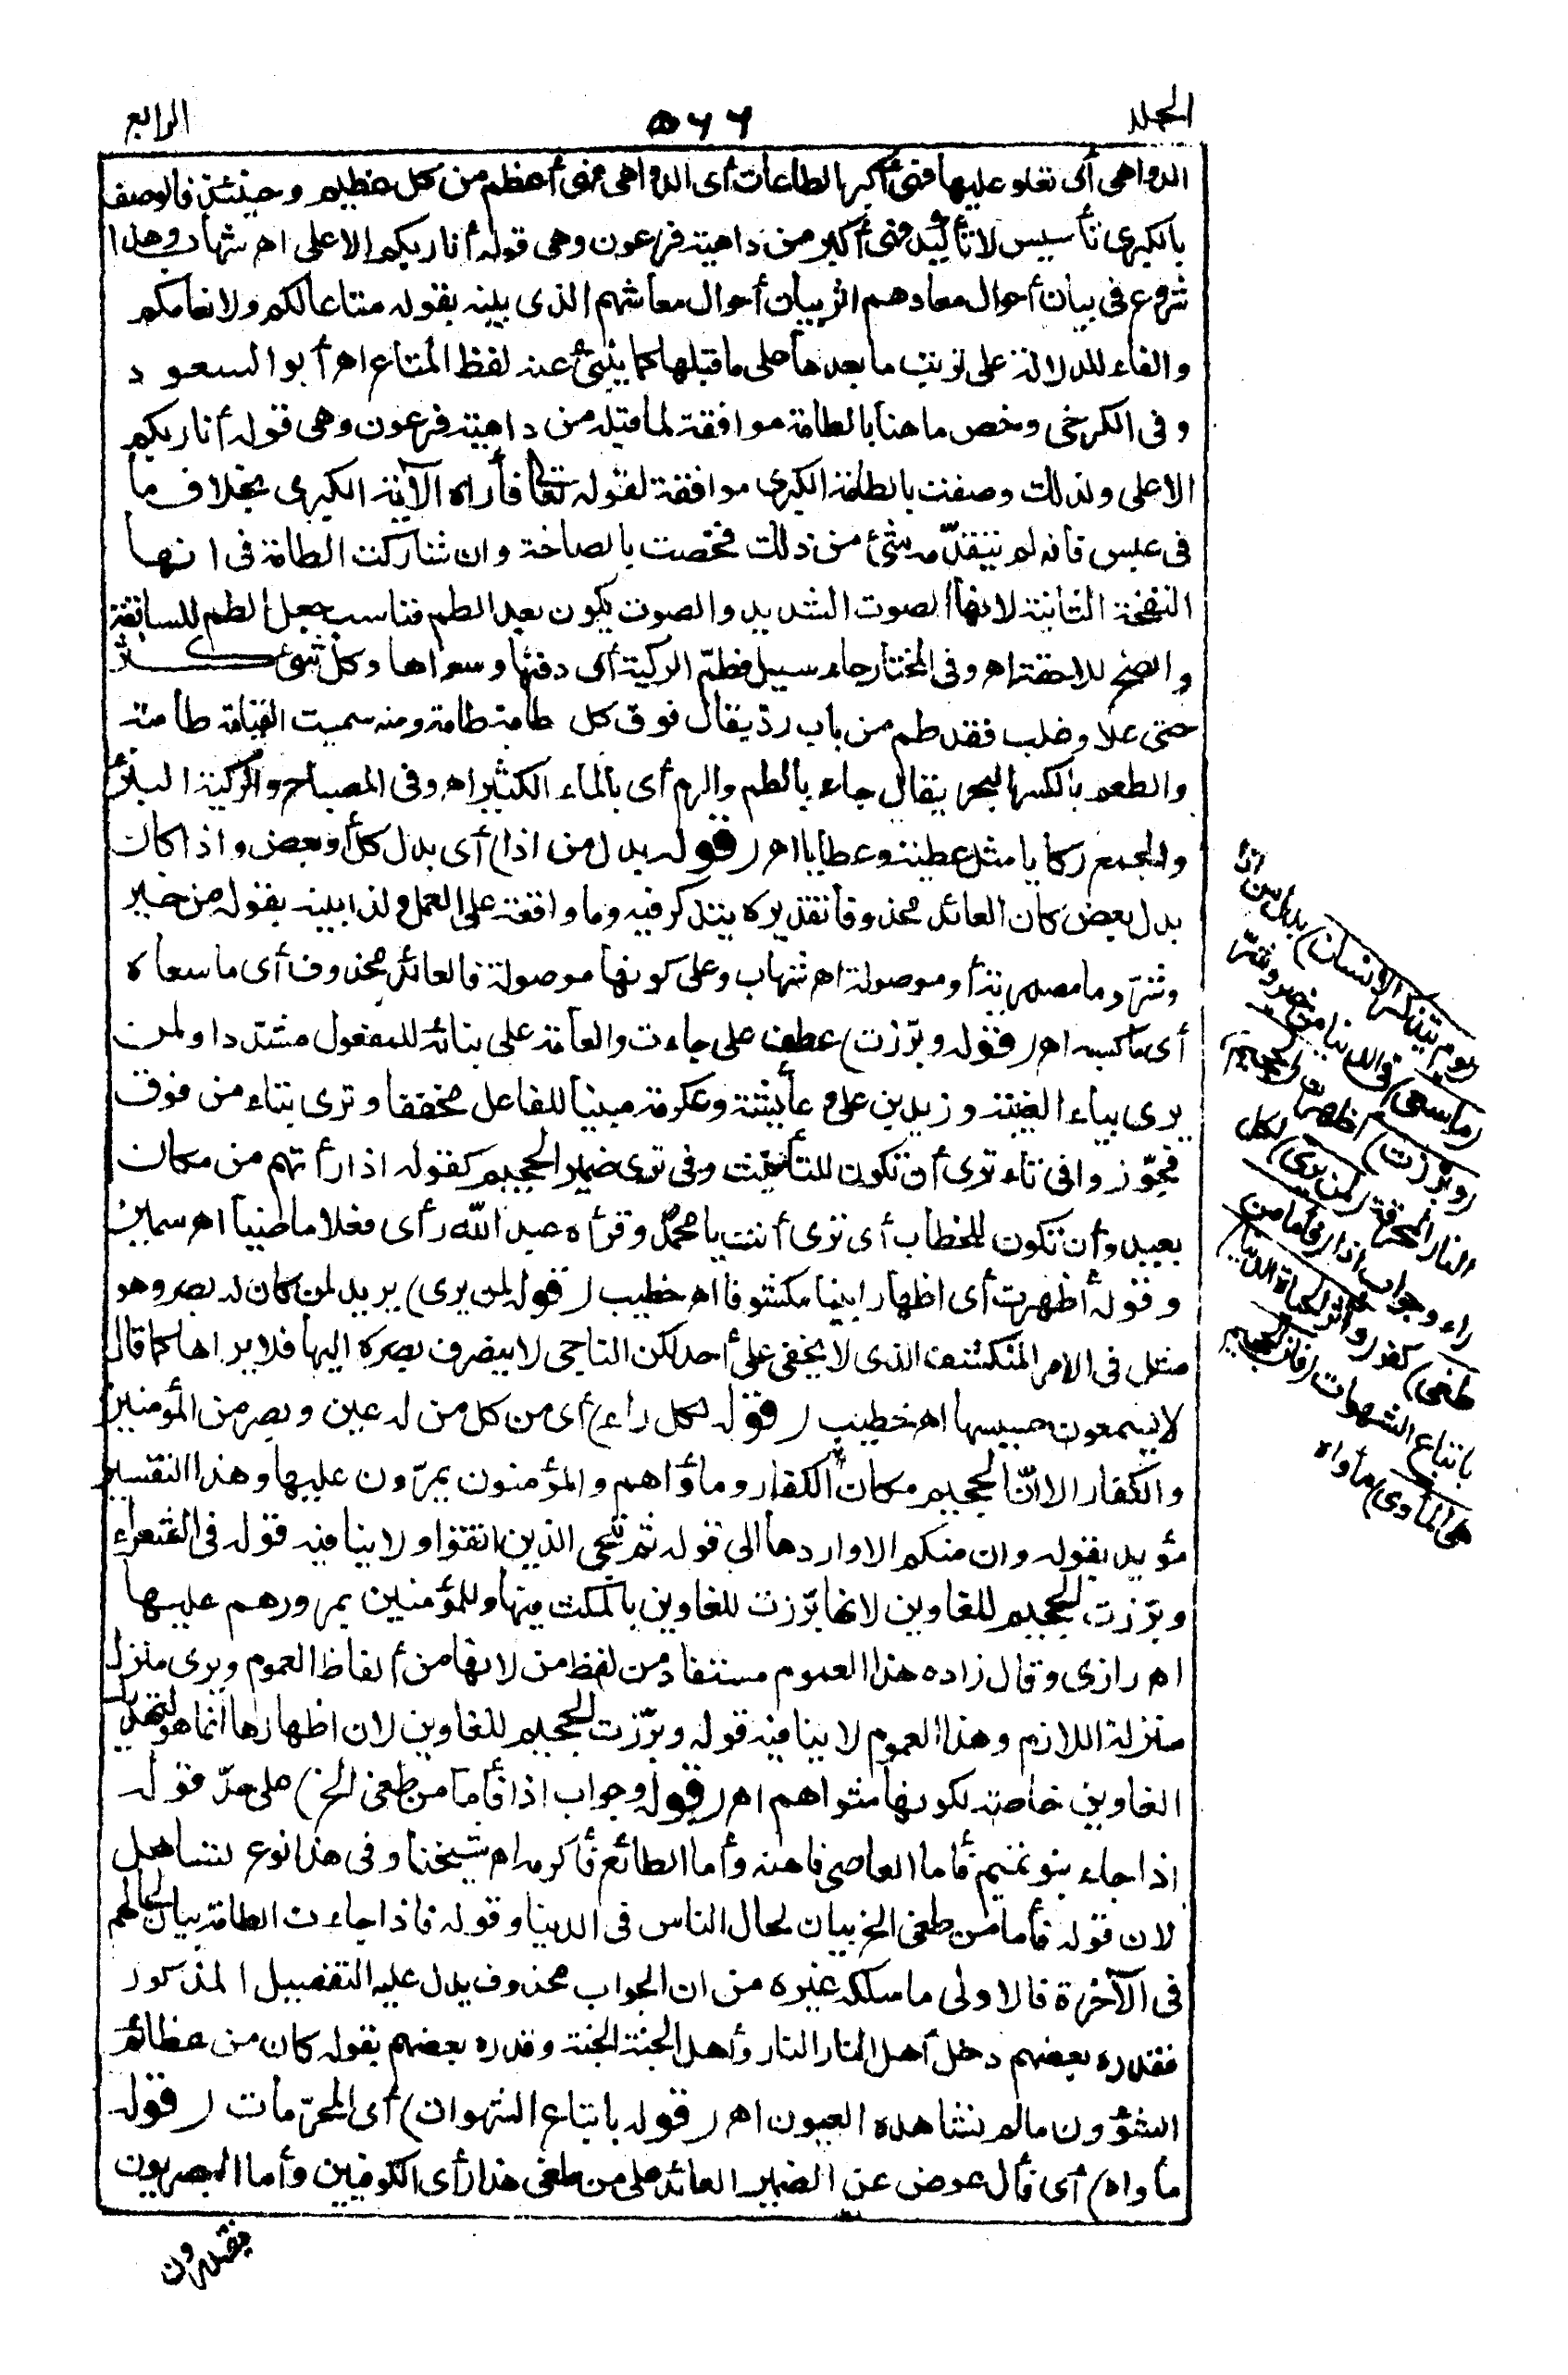 المجلد ٥٦٦ الرابع
الدواهى أى تعلو عليها فهى أكبر الطامات أى الدواهى فهى أعظم من كل عظيم وحينئذ فالوصف
بالكبرى تأسيس لا تأكيد فهى أكبر من داهية فرعون وهى قوله أنا ربكم الاعلى اهـ شهاب وهذا
شروع فى بيان أحوال معادهم اثر بيان أحوال معاشهم الذى بينه بقوله متاعا لكم ولانعامكم
والفاء للدلالة على ترتيب ما بعدها على ما قبلها كما ينبئ عنه لفظ المتاع اهـ أبو السعود
وفى الكرخى وخص ما هنا بالطامة موافقة لما قبله من داهية فرعون وهى قوله أنا ربكم
الاعلى ولذلك وصفت بالطامة الكبرى موافقة لقوله تعالى فأراه الآية الكبرى بخلاف ما
فى عبس فانه لم يتقدّمه شئ من ذلك فخصت بالصاخة وان شاركت الطامة فى انها
النفخة الثانية لانها الصوت الشديد والصوت يكون بعد الطم فناسب جعل الطم للسابقة
والصخ للاحقة اهـ وفى المختار جاء سيل فطمّ الركية أى دفنها وسواها وكل شئ كثر
حتى علا وغلب فقد طم من باب ردّ يقال فوق كل طامة طامة ومنه سميت القيامة طامة
والطم بالكسر البحر يقال جاء بالطم والرم أى بالماء الكثير اهـ وفى المصباح والركية البئر
والجمع ركايا مثل عطية وعطايا اهـ (قوله بدل من اذا) أى بدل كل أو بعض واذا كان
بدل بعض كان العائد محذوفا تقديره يتذكر فيه وما واقعة على العمل ولذا بينه بقوله من خير
وشرّ وما مصدرية أو موصولة اهـ شهاب وعلى كونها موصولة فالعائد محذوف أى ما سعاه
أى ما كسبه اهـ (قوله وبرّزت) عطف على جاءت والعامّة على بنائه للمفعول مشدّدا ولمن
يرى بياء الغيبة وزيد بن على وعائشة وعكرمة مبنيا للفاعل مخففا وترى بتاء من فوق
فجوّزوا فى تاء ترى أن تكون للتأنيث وفى ترى ضمير الجحيم كقوله اذا رأتهم من مكان
بعيد وأن تكون للخطاب أى ترى أنت يا محمد وقرأه عبد الله رأى فعلا ماضيا اهـ سمين
وقوله أظهرت أى اظهارا بينا مكشوفا اهـ خطيب (قوله لمن يرى) يريد لمن كان له بصر وهو
مثل فى الامر المنكشف الذى لا يخفى على أحد لكن الناجى لا ينصرف بصره اليها فلا يراها كما قال
لا يسمعون حسيسها اهـ خطيب (قوله لكل راء) أى من كل من له عين وبصر من المؤمنين
والكفار الا انّ الجحيم مكان الكفار ومأواهم والمؤمنون يمرّون عليها وهذا التفسير
مؤيد بقوله وان منكم الا واردها الى قوله ثم ننجى الذين اتقوا ولا ينافيه قوله فى الشعراء
وبرّزت الجحيم للغاوين لانها برّزت للغاوين بالمكث فيها وللمؤمنين بمرورهم عليها
اهـ رازى وقال زاده هذا العموم مستفاد من لفظ من لانها من ألفاظ العموم ويرى منزل
منزلة اللازم وهذا العموم لا ينافيه قوله وبرّزت الجحيم للغاوين لان اظهارها انما هو لتهديد
الغاوين خاصة لكونها مثواهم اهـ (قوله وجواب اذا فأما من طغى الخ) على حدّ قوله
اذا جاء بنو تميم فأما العاصى فأهنه وأما الطائع فأكرمه اهـ شيخنا وفى هذا نوع تساهل
لان قوله فأما من طغى الخ بيان لحال الناس فى الدنيا وقوله فاذا جاءت الطامة بيان لحالهم
فى الآخرة فالاولى ما سلكه غيره من ان الجواب محذوف يدل عليه التفصيل المذكور
فقدره بعضهم دخل أهل النار النار وأهل الجنة الجنة وقدره بعضهم بقوله كان من عظائم
الشؤون ما لم تشاهده العيون اهـ (قوله باتباع الشهوات) أى المحرّمات (قوله
مأواه) أى فأل عوض عن الضمير العائد على من طغى هذا رأى الكوفيين وأما البصريون
يقدرون
(يوم يتذكر الانسان) بدل من اذا
(ما سعى) فى الدنيا من خير وشرّ
(وبرّزت) أظهرت (الجحيم)
النار المحرقة (لمن يرى) لكل
راء وجواب اذا (فأما من
طغى) كفر (وآثر الحياة الدنيا)
باتباع الشهوات (فان الجحيم
هى المأوى) مأواه